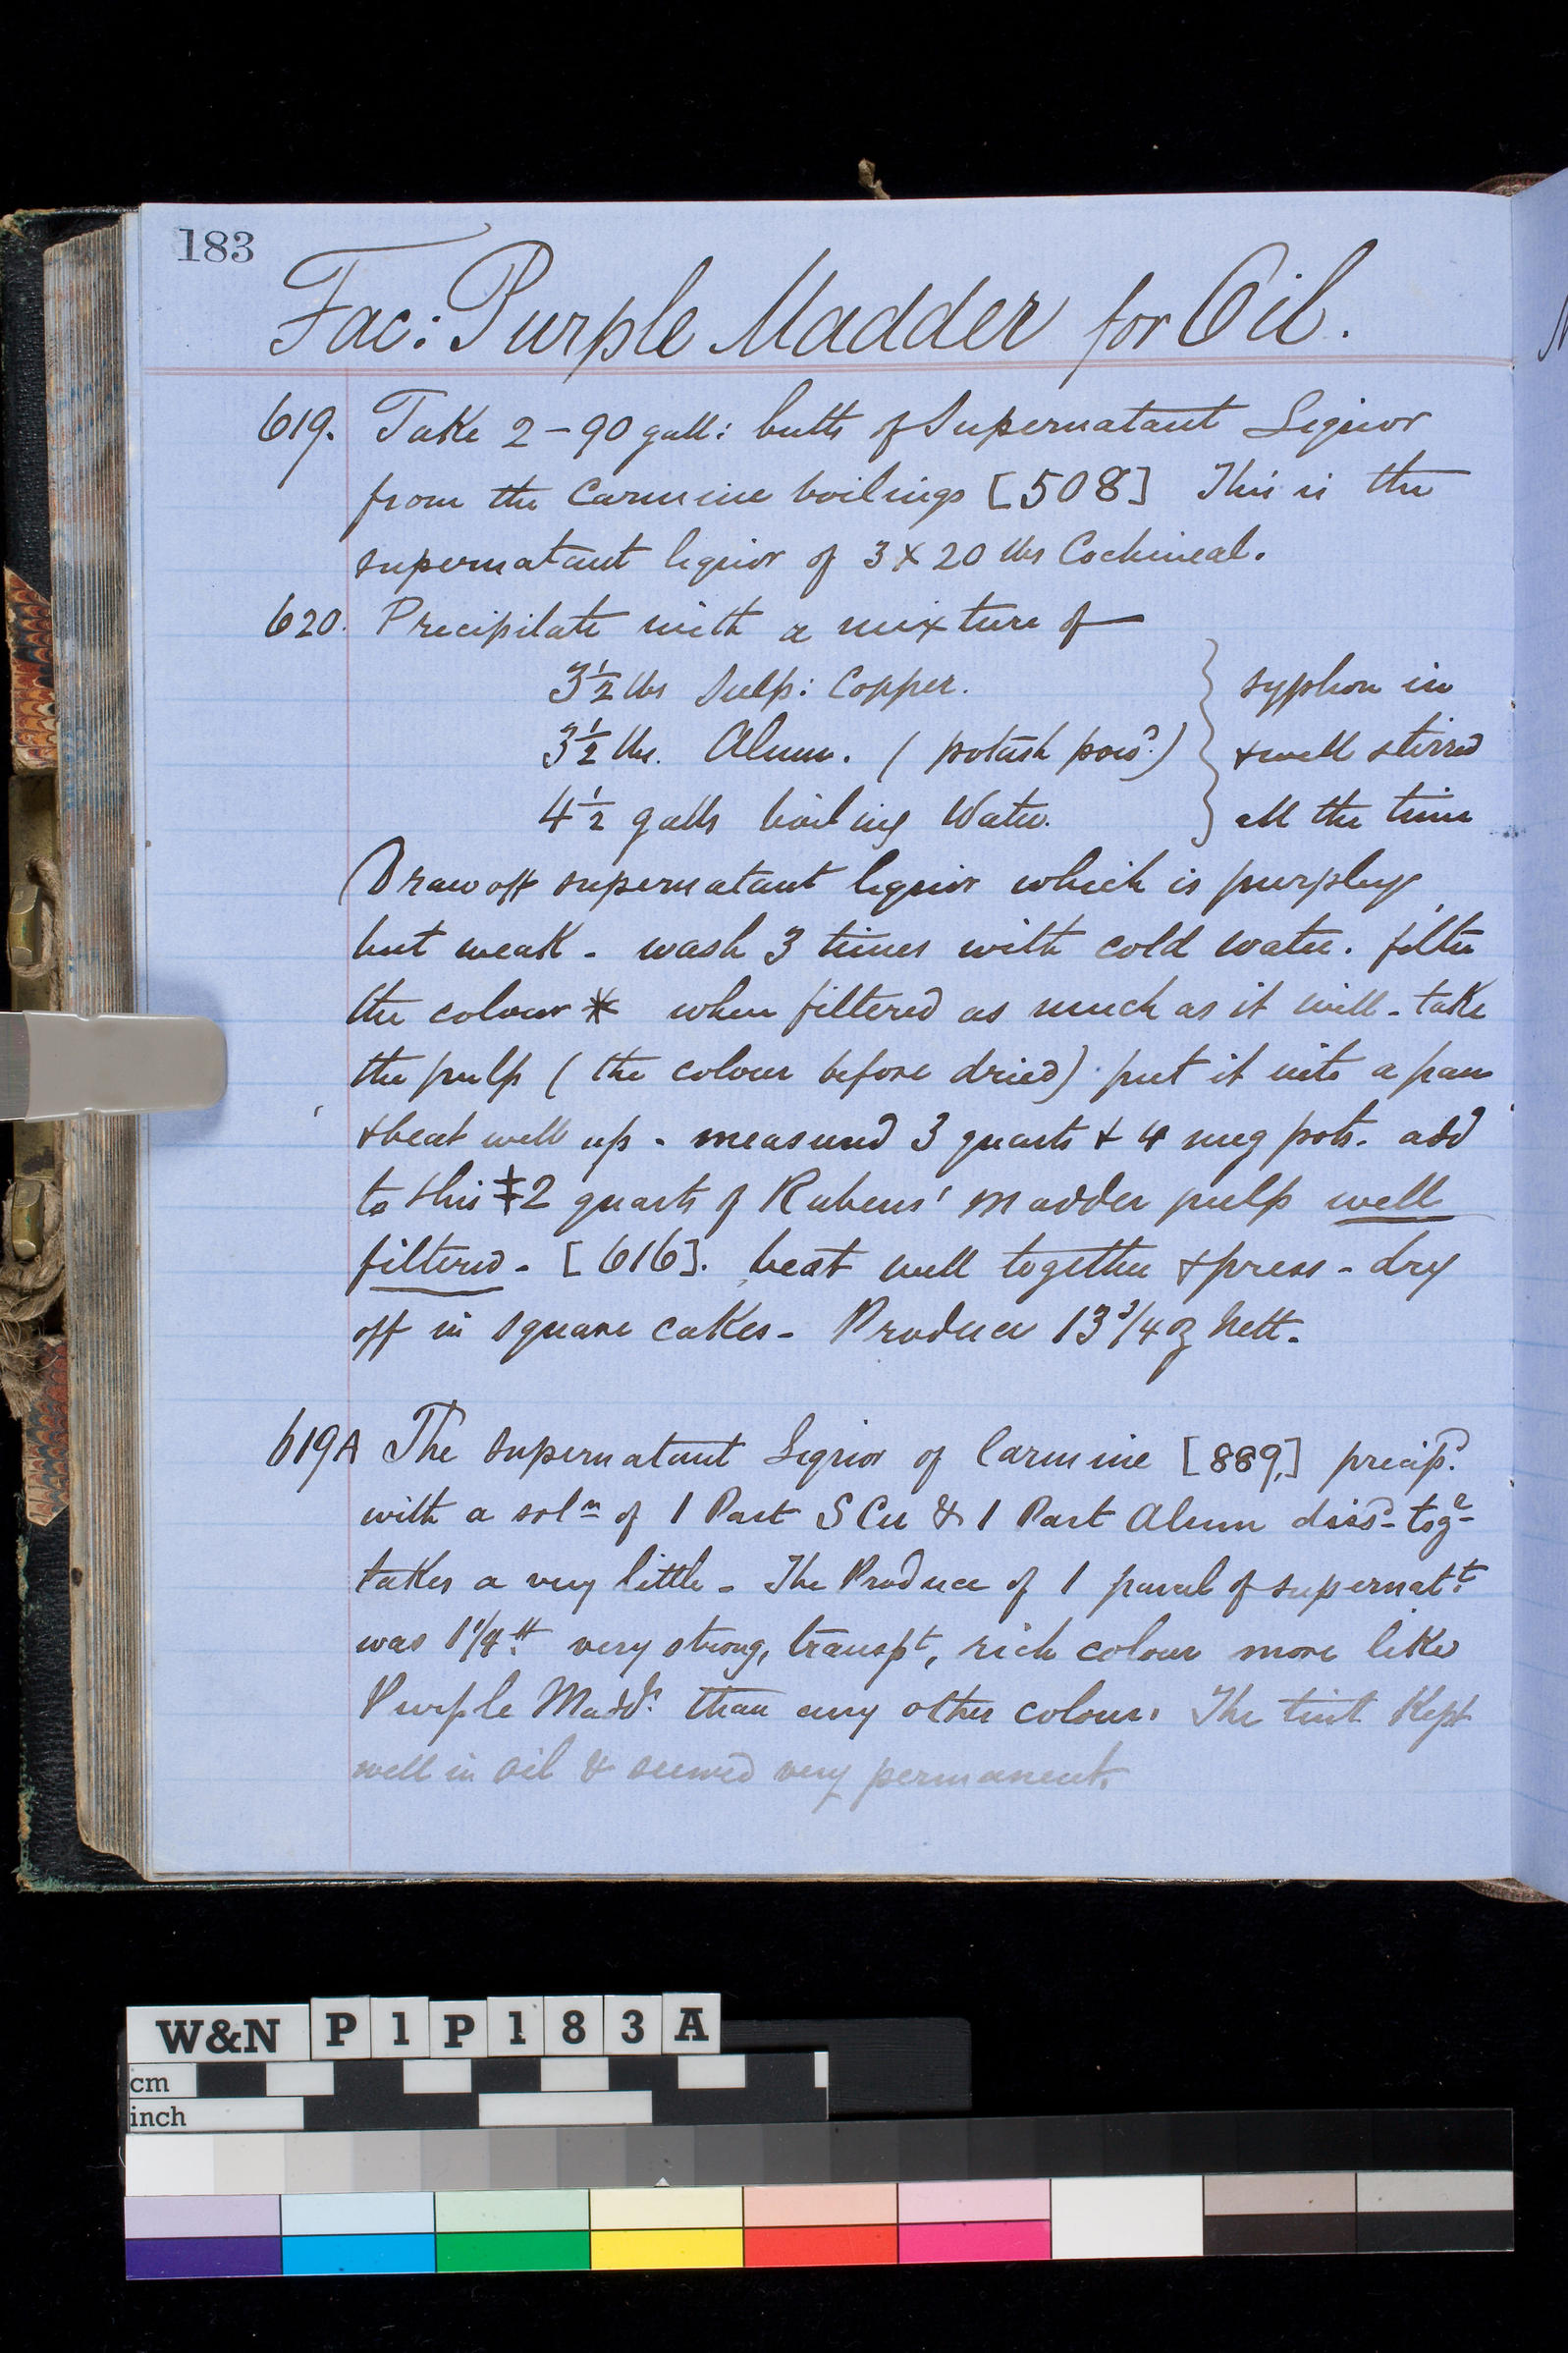 183
Fac: Purple Madder for Oil.
619. Take 2 – 90 gall: butts of Supernatant Liquor
from the Carmine boilings [508] This is the
supernatant liquor of 3 x 20 lbs Cochineal.
620. Precipitate with a mixture of —
3½ lbs Sulp: Copper. } syphon in
3½ lbs. Alum. (potash powd.) } & well stirred
4½ galls boiling Water. } all the time
Draw off supernatant liquor which is purply
but weak - wash 3 times with cold water. filter
the colour * when filtered as much as it will - take
the pulp (the colour before dried) put it into a pan
& beat well up - measured 3 quarts & 4 mug pots. add
to this ‡ 2 quarts of Rubens' Madder pulp well
filtered - [616]. beat well together & press - dry
off in square cakes - Produce 13 3/4 oz Nett.
619A The supernatant Liquor of Carmine [889,] precipd.
with a soln of 1 Part S Cu & 1 Part Alum dissd - togr
takes a very little - The Produce of 1 parcel of supernatt.
was 1 1/4 lb very strong, transpt, rich colour more like
Purple Maddr. than any other colour. The tint Kept
well in oil & seemed very permanent.
W&N P1P183A
cm
inch